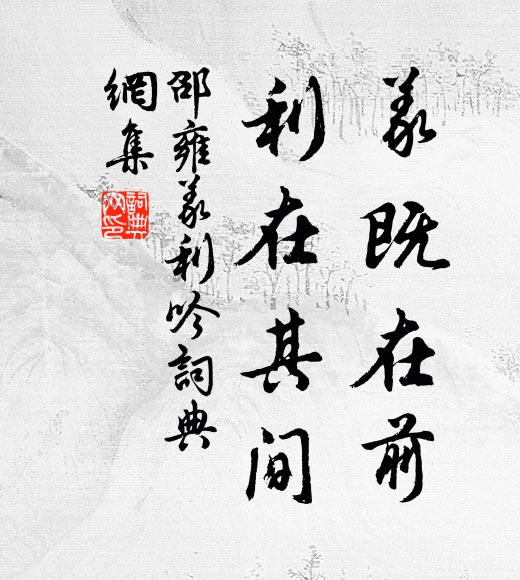 義既在前
利在其間
邵雍義利吟詞典
網集
詞典
网印